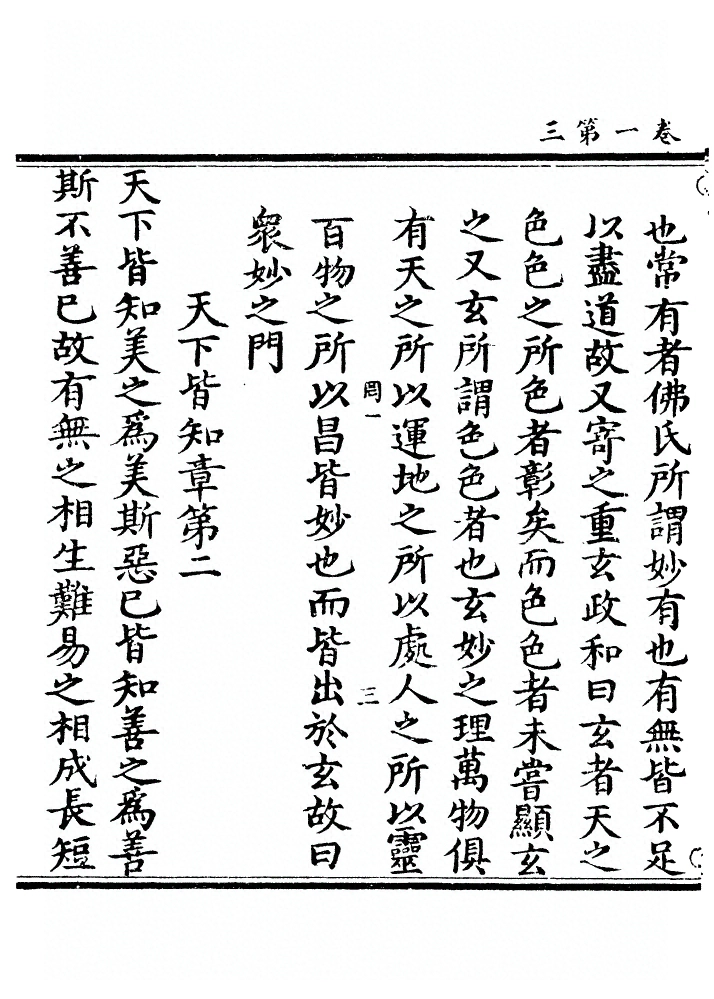 卷一第三
也常有者佛氏所謂妙有也有無皆不足
以盡道故又寄之重玄政和曰玄者天之
色色之所色者彰矣而色色者未嘗顯玄
之又玄所謂色色者也玄妙之理萬物俱
有天之所以運地之所以處人之所以靈
罔一
三
百物之所以昌皆妙也而皆出於玄故曰
衆妙之門
天下皆知章第二
天下皆知美之爲美斯惡已皆知善之爲善
斯不善已故有無之相生難易之相成長短